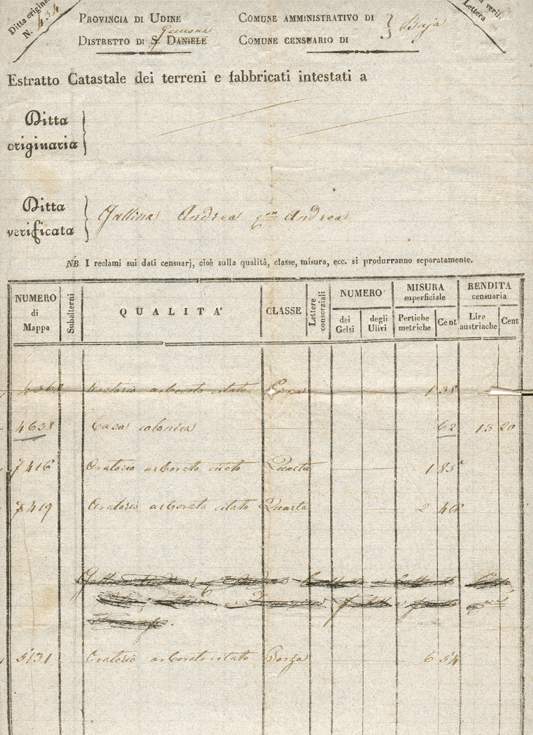 Ditta origin
N. 434
verif.
Lettera
Provincia di Udine
Comune amministrativo di
Buja
Gemona
Distretto di S. Daniele
Comune censuario di
Estratto Catastale dei terreni e fabbricati intestati a
Ditta
originaria
Ditta
verificata
Gallina Andrea qm Andrea
NB. I reclami sui dati censuarj, cioè sulla qualità, classe, misura, ecc. si produrranno separatamente.
NUMERO di Mappa
Subalterni
QUALITA'
CLASSE
Lettere consorziali
NUMERO
dei Gelsi
degli Ulivi
MISURA superficiale
Pertiche metriche
Cent
RENDITA censuaria
Lire austriache
Cent
Oratorio arborato vitato Terza 1 38
4638 Casa colonica 62 15 20
7416 Oratorio arborato vitato Quarta 1 85
7419 Oratorio arborato vitato Quarta 2 40
5131 Oratorio arborato vitato Terza 6 54